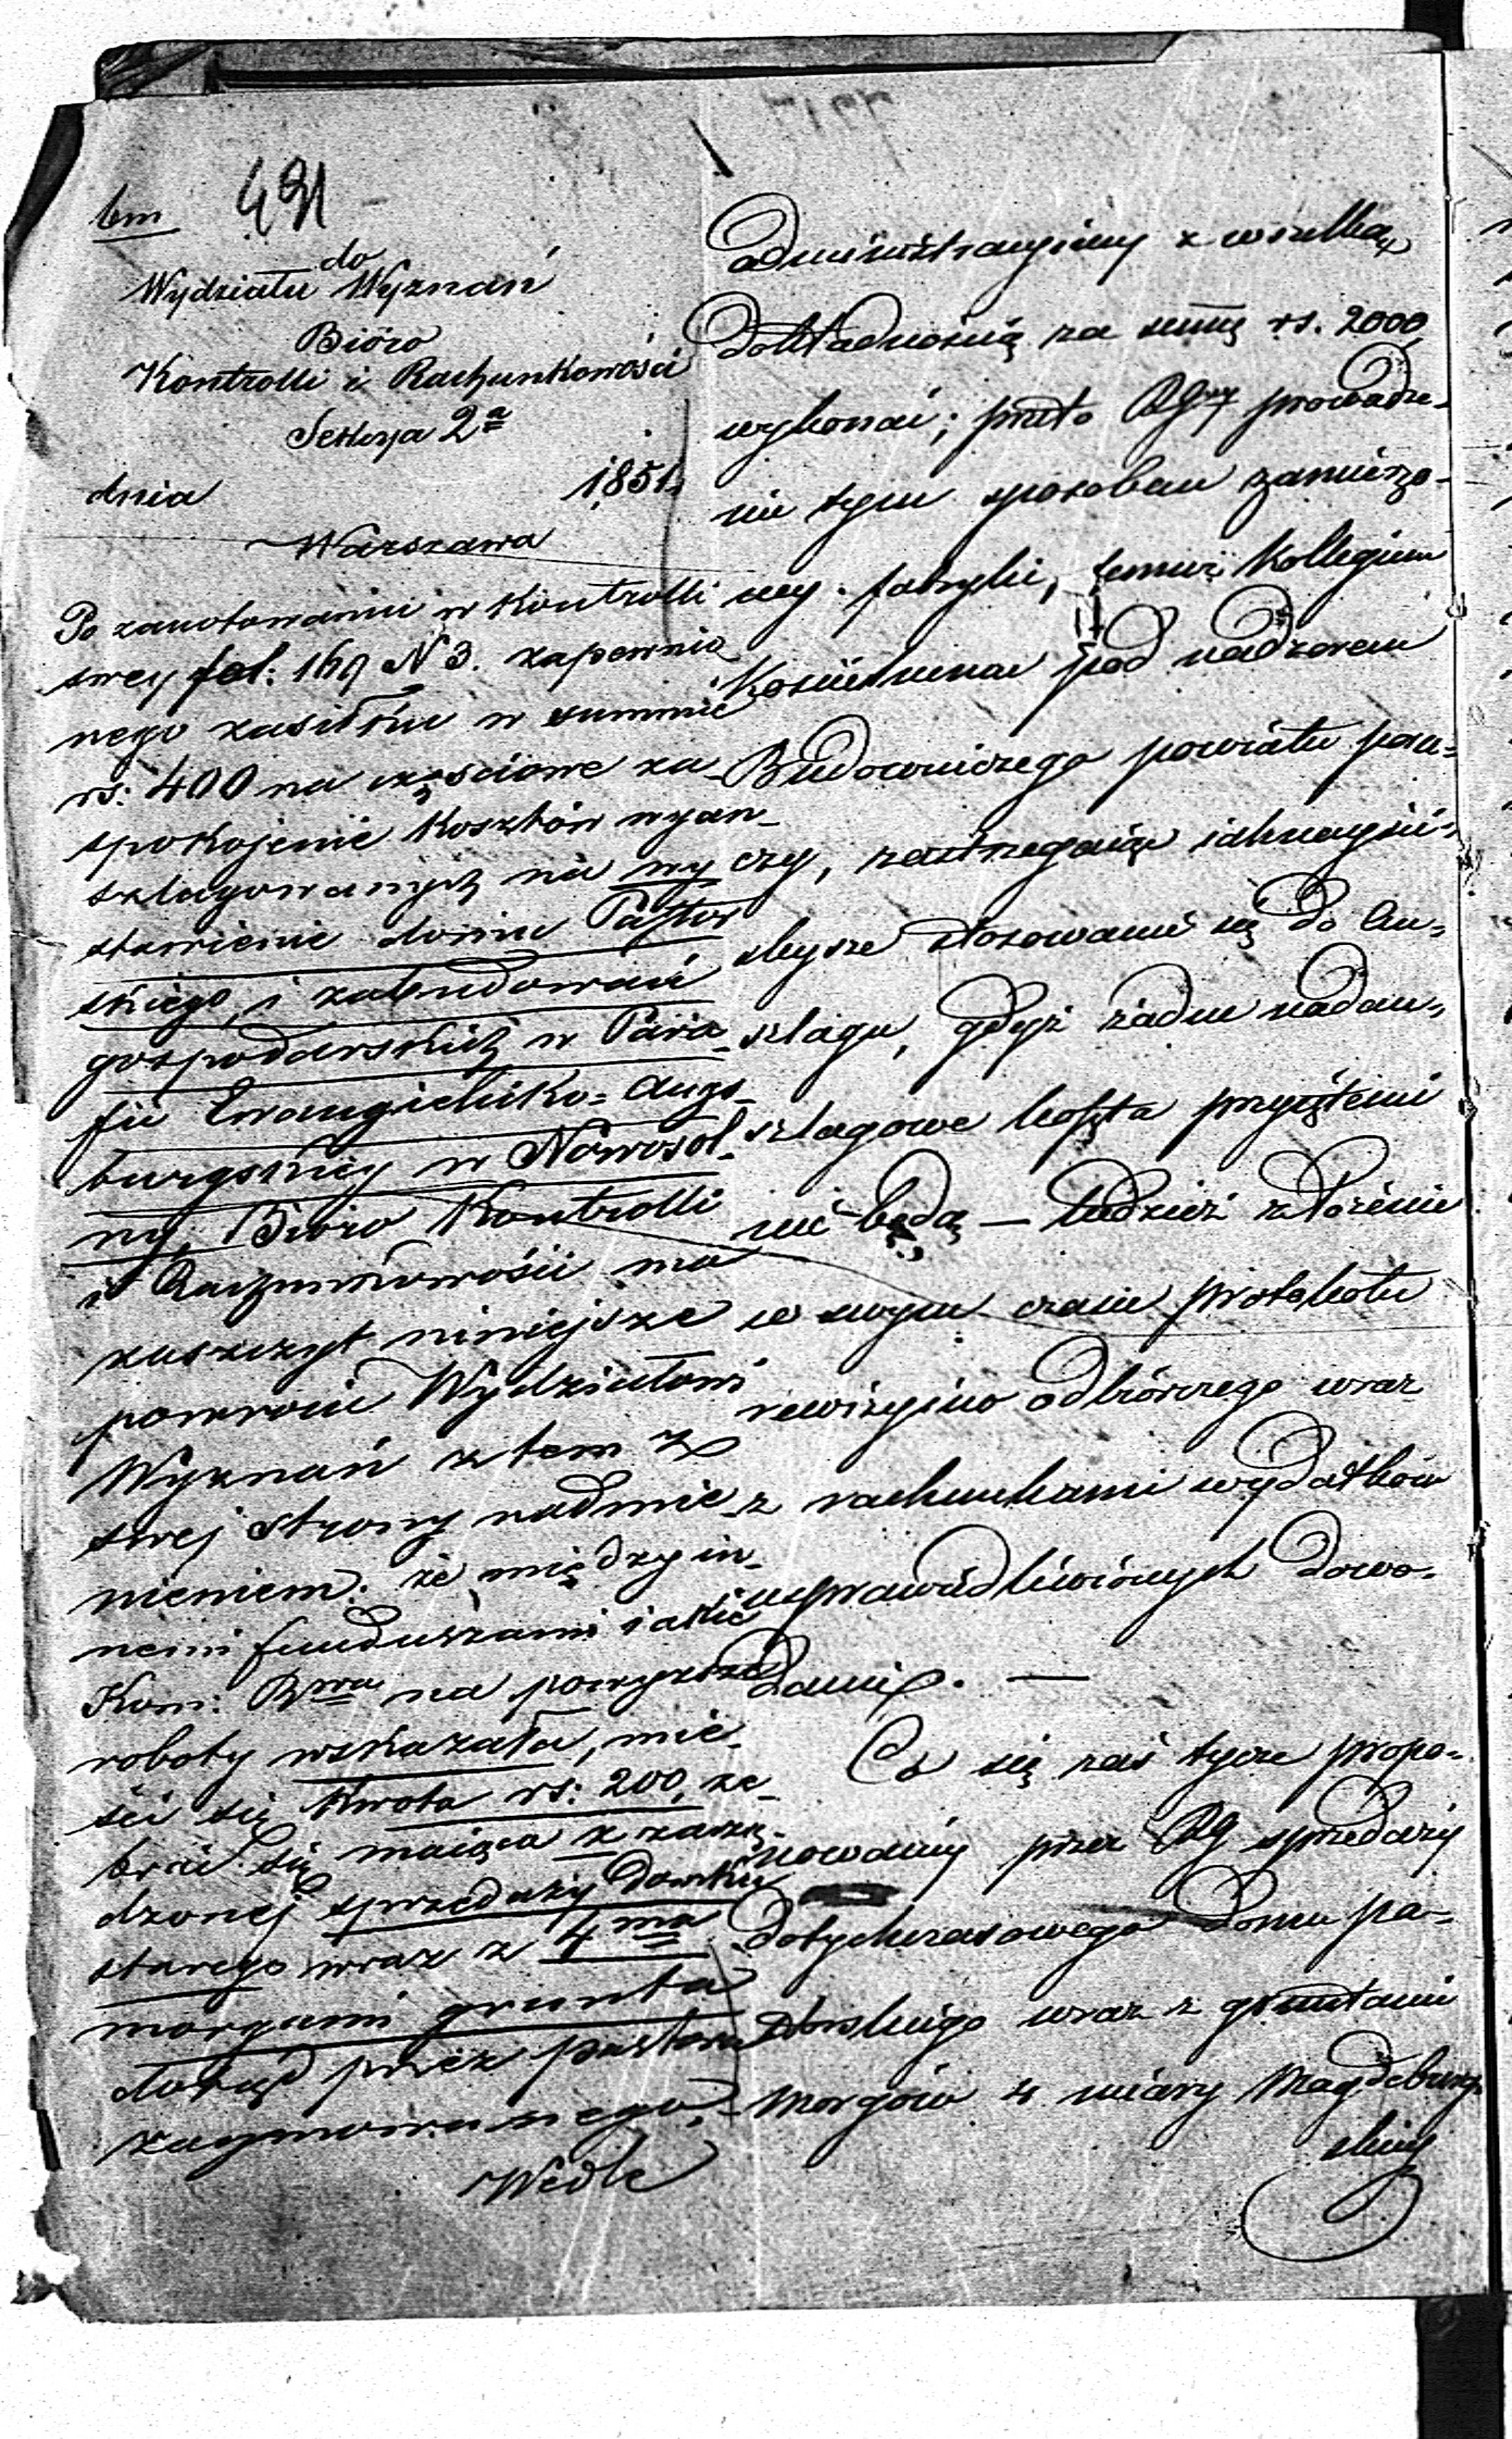 bm
491
do
Wydziału Wyznań
Bióro
Kontrolli i Rachunkowości
Sekcya 2a
dnia 1851.
Warszawa
Po zanotowaniu w Kontrolli
swey fol: 169 N 3. zapewnio_
nego zasiłku w summie
rs: 400 na częściowe za_
spokojenie kosztów wyan_
szlagowanych na wy_
stawienie domu Pastor_
skiego, i zabudowań
gospodarskich w Para_
fii Ewangielicko=Augs_
burgskiey w Nowosol_
ny, Bióro Kontrolli
i Rachunkowości ma
zaszczyt niniejsze
powrócić Wydziałowi
Wyznań z tem z
swej strony nadmie_
nieniem. że między in_
nemi funduszami iakie
Kom: Rwa na powyższe
roboty wskazała, mie_
ści się kwota rs: 200, ze_
brać się maiąca z zarzą_
dzonej sprzedaży domku
starego wraz z 4ma
morgami gruntu
dotąd przez pastora
zaymowanego._
Wedle
administracyiney z wszelką
dokładnością za summę rs. 2000
wykonać; przeto RGny prowadze_
nie tym sposobem zamierzo_
ney fabryki, temuż Kollegium
Kościelnemu pod nadzorem
Budowniczego powiatu poru=
czy, zastrzegaiąc iaknayści=
śleysze stosowanie się do An=
szlagu, gdyż żadne nadan=
szlagowe koszta przyiętemi
nie będą — tudzież złożenie
w swym czasie protokołu
rewizyino odbiórczego wraz
z rachunkami wydatków
usprawiedliwionych dowo=
dami. —
Co się zaś tycze propo=
nowaney przez RG sprzedaży
dotychczasowego domu pa=
storskiego wraz z gruntami
morgów 4 miary Magdeburg
skiey